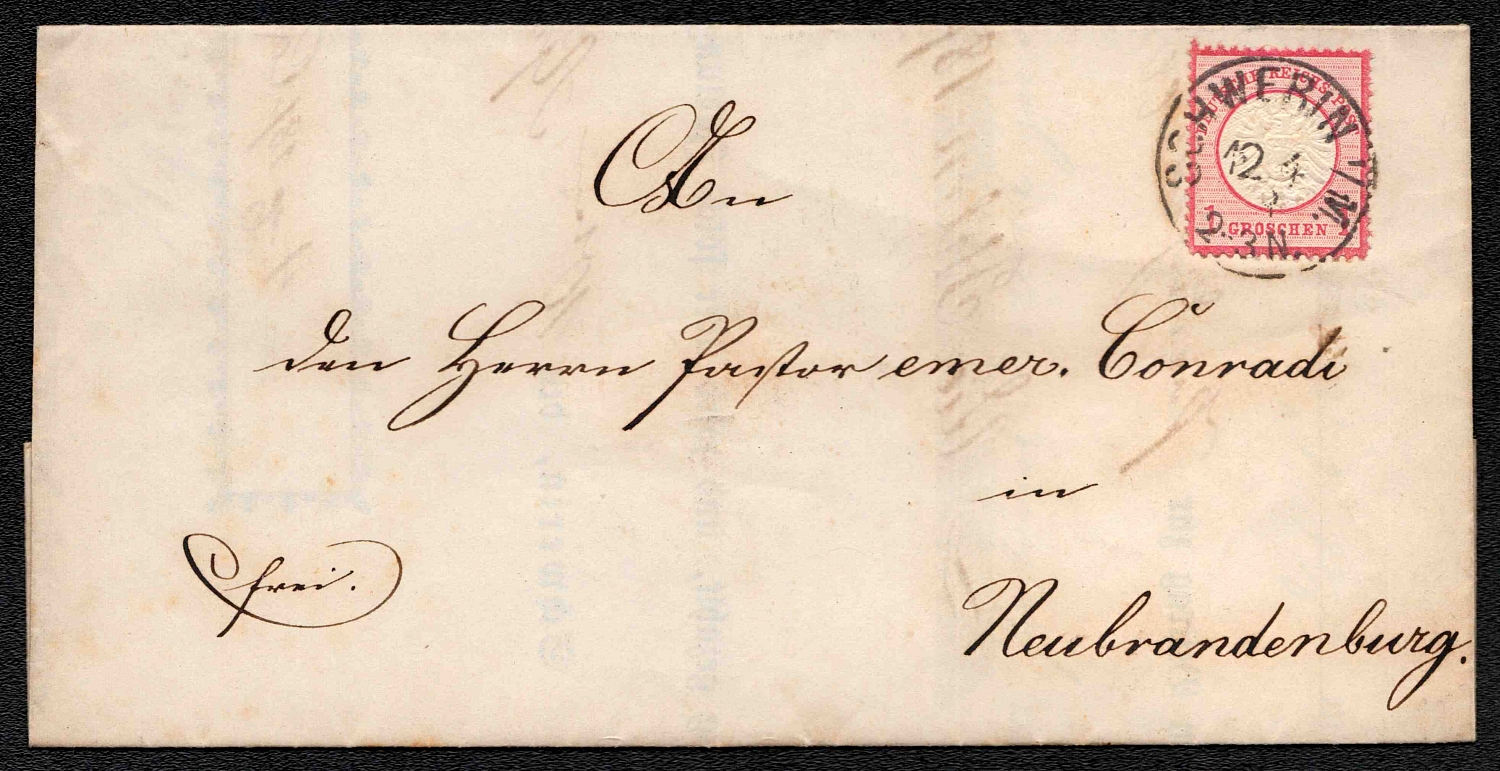 DEUTSCHE REICHS-POST
1 GROSCHEN 1
SCHWERIN I/M.
12 4
2-3N.
An
den Herrn Pastor emer. Conradi
in
Neubrandenburg.
frei.